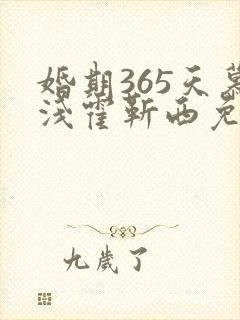 婚期365天慕
浅霍靳西免
九歲了